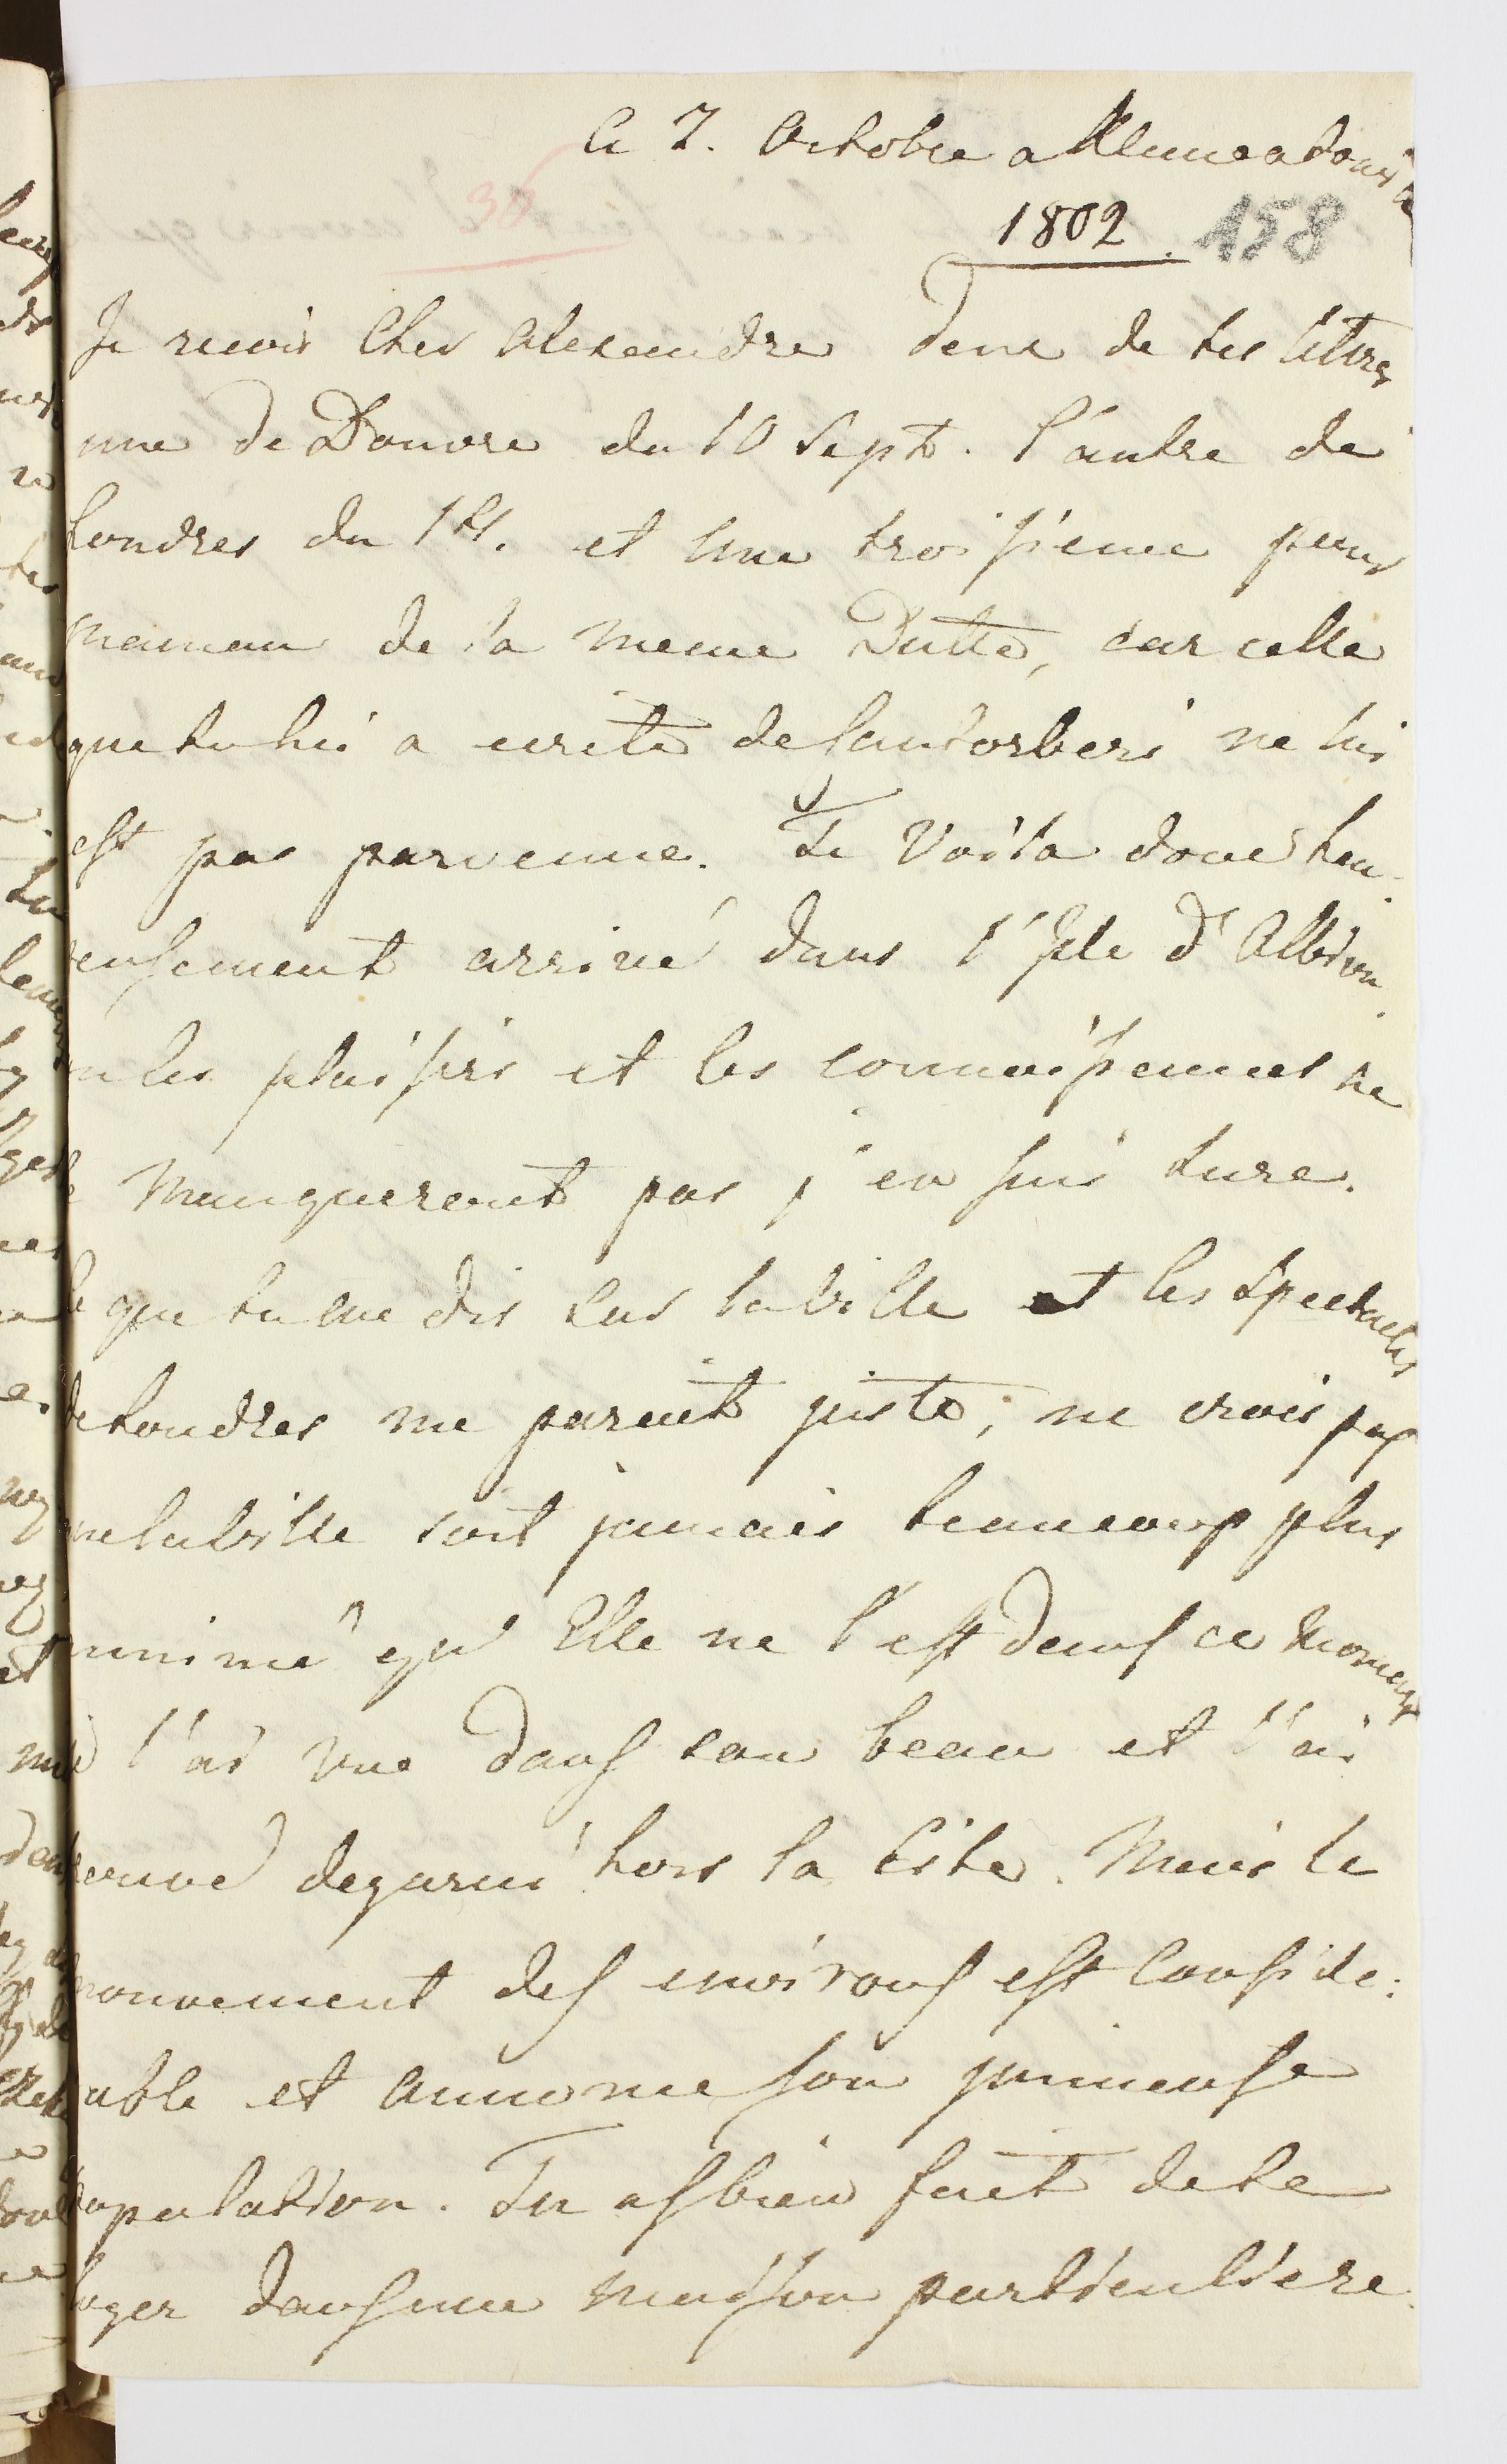 Ce 7. Octobre a
1802. 158
36
Je recois Cher Alexandre deux de tes lettres
une de Douvre du 10 Sept. l'autre de
Londres du 14. et une troisieme pour
maman de la meme Datte, car celle
que tu lui a ecrite de Cantorberi ne lui
est pas parvenue. Te Voila donc heu-
reusement arrivé dans l'Isle d'Albion.
les plaisirs et les connoissances ne
te manqueront pas j'en suis sure.
Ce que tu me dis sur la ville et les Spectacles
de Londres me parait juste; ne crois pas
que la ville soit jamais beaucoup plus
animé qu'Elle ne l'est dans ce moment
l'ai vue dans son beau et l'ai
trouvé degarni hors la Cité. Mais le
mouvement des environs est Conside:
rable et annonce son immense
population. Tu as bien fait de te
loger dans une maison particuliere.